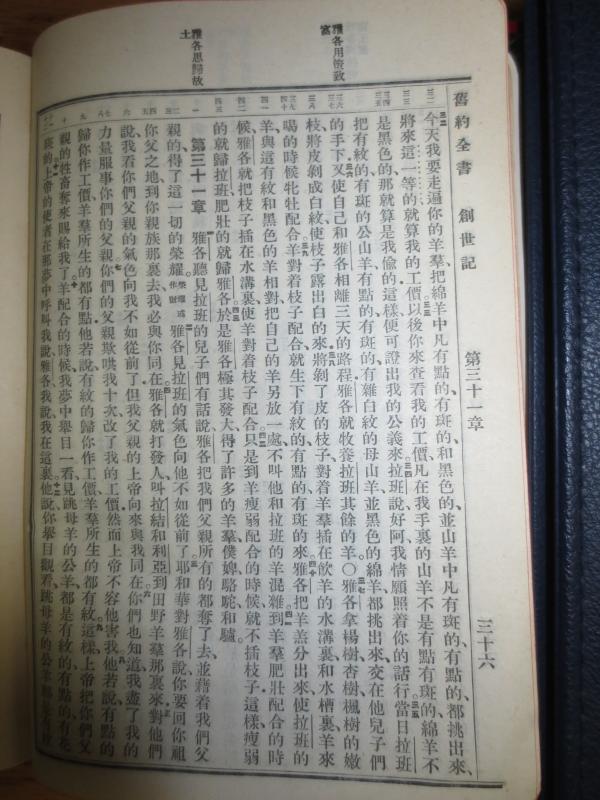 舊約全書 創世記 第三十一章 三十六
雅各用條致富
雅各思歸故土
今天我要走遍你的羊羣、把綿羊中凡有點的、有斑的、和黑色的、並山羊中凡有斑的、有點的、都挑出來、
將來這一等的、就算我的工價、以後你來查看我的工價、凡在我手裏的山羊不是有點有斑的、綿羊不
是黑色的、那就算是我偷的、這樣便可證出我的公義來、拉班說、好阿、我情願照着你的話行、當日拉班
把有紋的、有斑的公山羊、有點的、有斑的、有雜白紋的母山羊、並黑色的綿羊、都挑出來、交在他兒子們
的手下、又使自己和雅各相離三天的路程、雅各就牧養拉班其餘的羊〇雅各拿楊樹杏樹楓樹的嫩
枝、將皮剝成白紋、使枝子露出白的來、將剝了皮的枝子、對着羊羣、插在飲羊的水溝裏和水槽裏、羊來
喝的時候、牝牡配合、羊對着枝子配合、就生下有紋的、有點的、有斑的來、雅各把羊羔分出來、使拉班的
羊、與這有紋和黑色的羊相對、把自己的羊另放一處、不叫他和拉班的羊混雜、到羊羣肥壯配合的時
候、雅各就把枝子插在水溝裏、使羊對着枝子配合、只是到羊瘦弱配合的時候、就不插枝子、這樣瘦弱
的就歸拉班、肥壯的就歸雅各、於是雅各極其發大、得了許多的羊羣、僕婢、駱駝、和驢、
第三十一章 雅各聽見拉班的兒子們有話說、雅各把我們父親所有的都奪了去、並藉着我們父
親的得了這一切的榮耀、榮耀或作財 雅各見拉班的氣色向他不如從前了、耶和華對雅各說、你要回你祖
你父之地、到你親族那裏去、我必與你同在、雅各就打發人叫拉結和利亞到田野羊羣那裏來、對他們
說、我看你們父親的氣色向我不如從前了、但我父親的上帝向來與我同在、你們也知道我盡了我的
力量服事你們的父親、你們的父親欺哄我、十次改了我的工價、然而上帝不容他害我、他若說、有點的
歸你作工價、羊羣所生的都有點、他若說、有紋的歸你作工價、羊羣所生的都有紋、這樣上帝把你們父
親的牲畜奪來賜給我了、羊配合的時候、我夢中舉目一看、見跳母羊的公羊都是有紋的、有點的、有花
斑的、上帝的使者在那夢中呼叫我說、雅各、我說、我在這裏、他說、你舉目觀看、跳母羊的公羊都